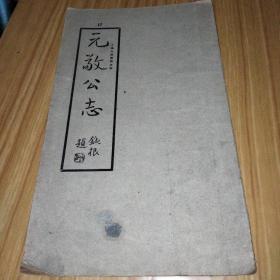 元敬公志
鈍根
題